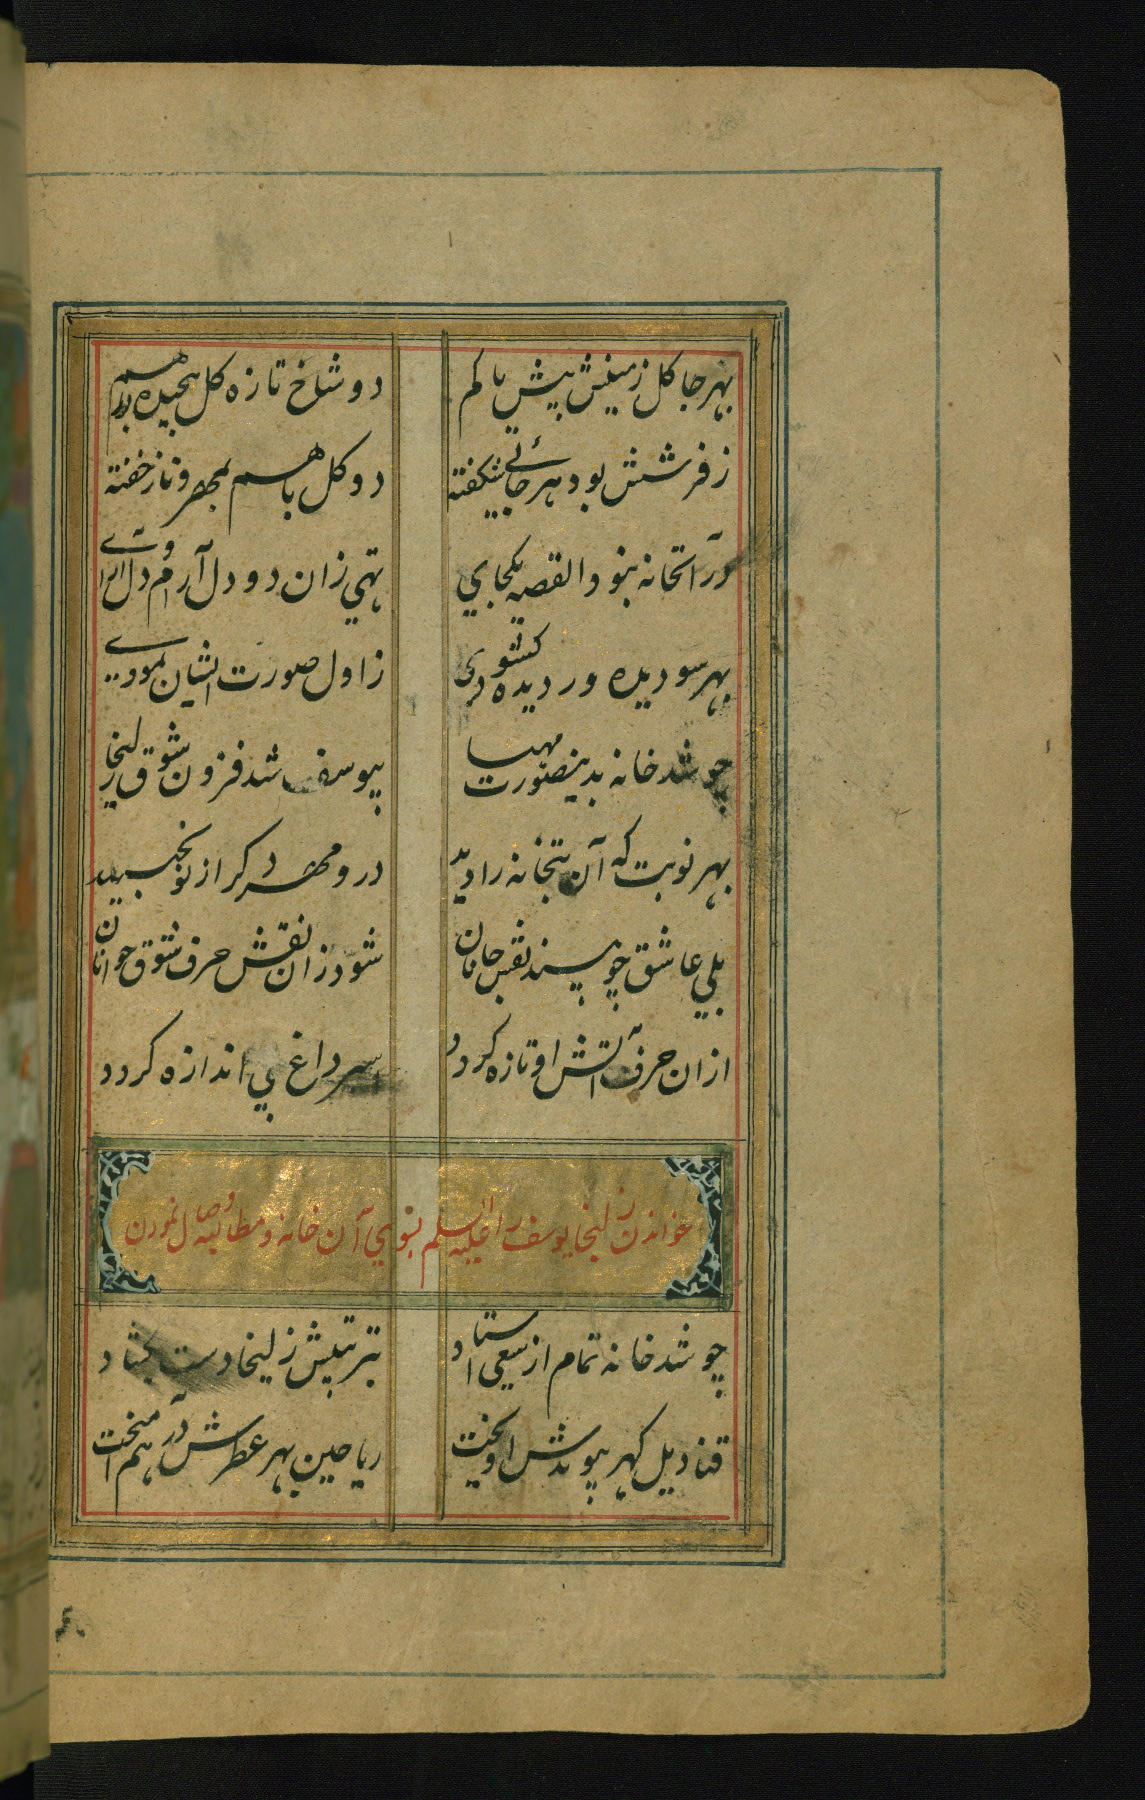 بهر جا کل زمینش پیش یا کم
دو شاخ تازه کل پیچیده باهم
ز فرشش بود هر جائی شکفته
دو کل باهم بمهر و ناز خفته
در آنخانه نبود القصه یکجای
تهی زان دو دل آرام دل آرای
بهر سو دیده ور دیده کشودی
ز اول صورت ایشان نمودی
چو شد خانه بدینصورت مهیا
بیوسف شد فزون شوق زلیخا
بهر نوبت که آن بتخانه را دید
درو مهر دکر از نو بجنبید
بلی عاشق چو بیند نقش جانان
شود زان نقش حرف شوق خوانان
ازان حرف آتش او تازه کردد
اسیر داغ بی اندازه کردد
خواندن زلیخا یوسف را علیه السلم بسوی آن خانه و مطالبه وصال نمودن
چو شد خانه تمام از سعی استاد
بتزیینش زلیخا دست بکشاد
قنادیل کهر پیوندش آویخت
ریاحین بهر عطرش در هم آمیخت